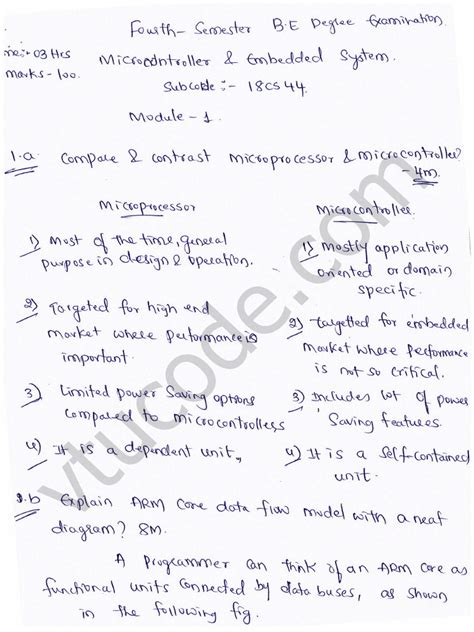 Fourth- Semester B.E Degree Examination
me:- 03 Hrs
marks - 100.
Microcontroller & Embedded System.
Subcode :- 18CS44.
Module - 1.
1.a Compare & contrast microprocessor & microcontroller?
- 4m.
Microprocessor
Microcontroller.
1) Most of the time, general
purpose in design & operation.
1) Mostly application
oriented or domain
specific.
2) Targeted for high end
market where performance is
important.
2) Targetted for embedded
market where performance
is not so critical.
3) Limited power saving options
compared to microcontrollers
3) Includes lot of power
saving features.
4) It is a dependent unit,
4) It is a self-contained
unit.
1.b Explain ARM core data flow model with a neat
diagram? 8M.
A Programmer can think of an ARM core as
functional units connected by data buses, as shown
in the following fig.
vtucode.com